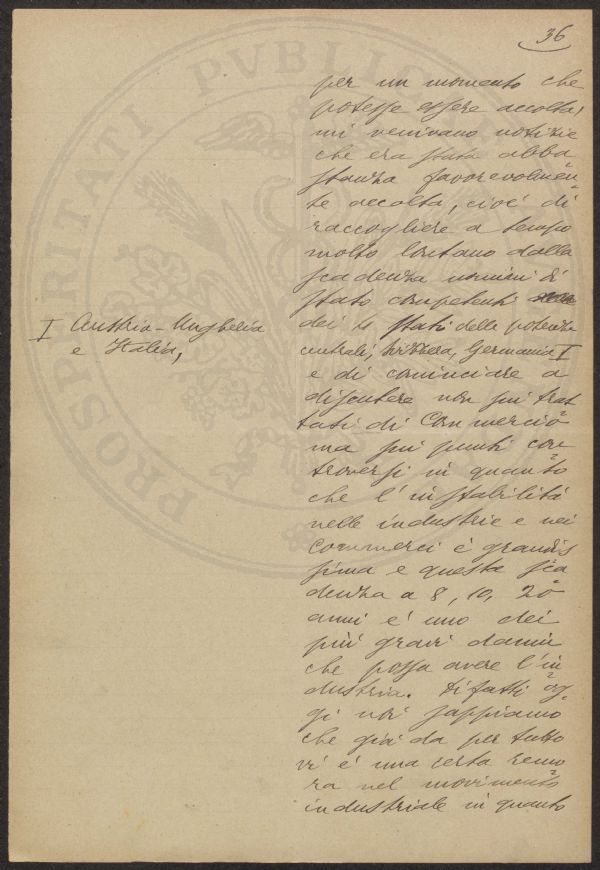 36
per un momento che
potesse essere accolta,
mi venivano notizie
che era stata abba
stanza favorevolmen
te accolta, cioè di
raccogliere a tempo
molto lontano dalla
scadenza uomini di
stato competenti
dei stati delle potenze
centrali, Svizzera, Germania I
I Austria-Ungheria
e Italia,
e di cominciare a
discutere non sui trat
tati di Commercio
ma sui punti con
troversi in quanto
che l'instabilità
nelle industrie e nei
Commerci è grandis
sima e questa sca
denza a 8, 10, 20
anni è uno dei
più gravi danni
che possa avere l'in
dustria. Difatti og
gi noi sappiamo
che già da per tutto
vi è una certa remo
ra nel movimento
industriale in quanto
PROSPERITATI PVBLIC